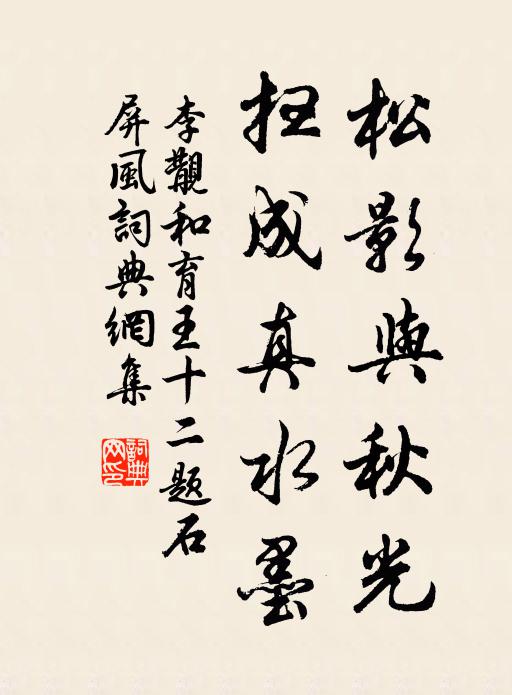 松影與秋光
扫成真水墨
李觀和育王十二题石
屏風詞典網集
詞典
网印